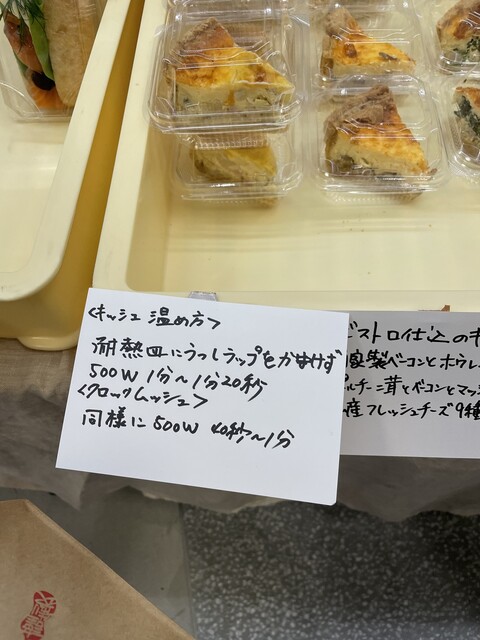 <キッシュ 温め方>
耐熱皿にうつしラップをかけず
500W 1分〜1分20秒
<クロックムッシュ>
同様に500W 40秒〜1分
ビストロ仕込のキ
自家製ベーコンとホウレ
ポルチーニ茸とベーコンとマッシ
産フレッシュチーズ9種